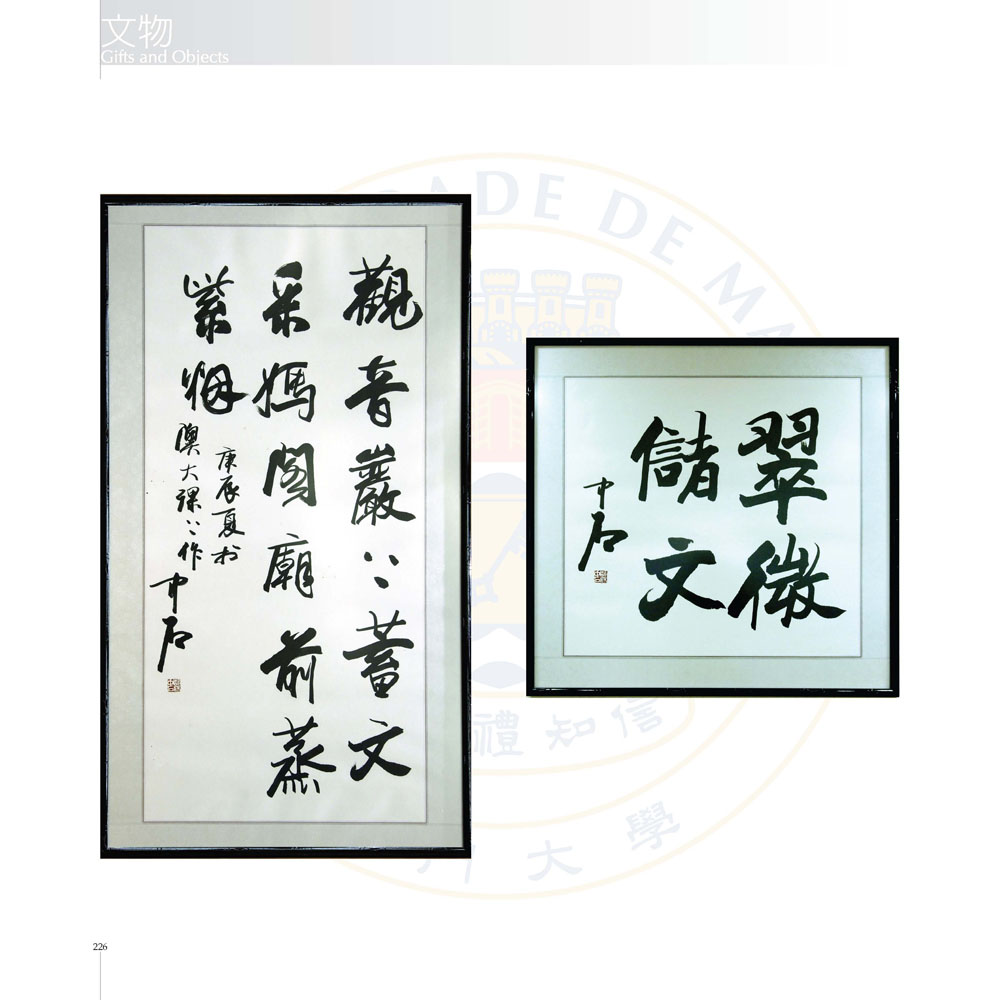 文物
Gifts and Objects
觀音巖上蓄文
采媽閣廟前蒸
紫烟
庚辰夏於
澳大課上作
中石
翠微
儲文
中石
ADE DE MA
禮知信
大學
226